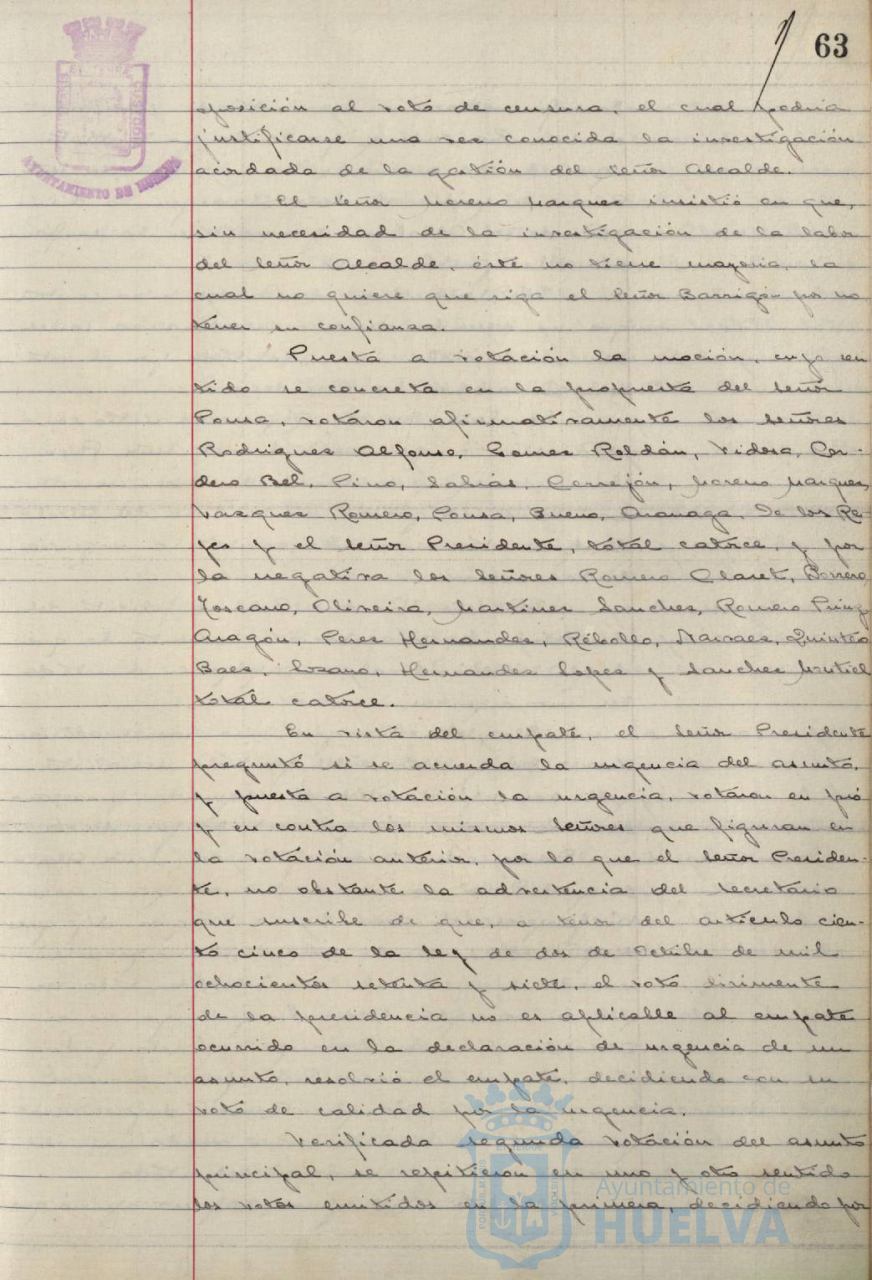 63
AYUNTAMIENTO DE HUELVA
oposición al voto de censura, el cual podria
justificarse una vez conocida la investigación
acordada de la gestión del señor Alcalde.
El señor Moreno Marquez insistió en que,
sin necesidad de la investigación de la labor
del señor Alcalde, éste no tiene mayoria, la
cual no quiere que siga el señor Barrigón por no
tener su confianza.
Puesta a votación la moción, cuyo sen
tido se concreta en la propuesta del señor
Ponsa, votaron afirmativamente los señores
Rodriguez Alfonso, Gomez Roldán, Vidosa, Cor-
dero Bel, Pino, Sabrás, Cerrejón, Moreno Marquez,
Vazquez Romero, Ponsa, Bueno, Aranaga, De los Re-
yes y el señor Presidente, total catorce, y por
la negativa los señores Romero Claret, Borrero,
Toscano, Oliveira, Martinez Sanchez, Romero
Aragón, Perez Hernandez, Rébollo, Narvaez, Quintero
Baez, Lozano, Hernandez Lopez y Sanchez
total catorce.
En vista del empate, el señor Presidente
preguntó si se acuerda la urgencia del asunto,
y puesta a votación la urgencia, votaron en pró
y en contra los mismos señores que figuran en
la votación anterior, por lo que el señor Presiden-
te, no obstante la advertencia del secretario
que suscribe de que, a tenor del articulo cien-
to cinco de la ley de dos de Octubre de mil
ochocientos setenta y siete, el voto dirimente
de la presidencia no es aplicable al empate
ocurrido en la declaración de urgencia de un
asunto, resolvió el empate, decidiendo con su
voto de calidad por la urgencia.
Verificada segunda votación del asunto
principal, se repitieron en uno y otro sentido
los votos emitidos en la primera, decidiendo por
Ayuntamiento de
HUELVA